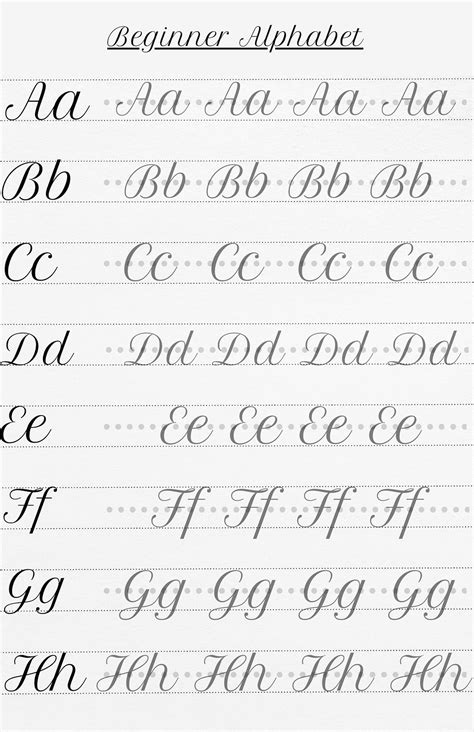 Beginner Alphabet
Aa Aa Aa Aa Aa
Bb Bb Bb Bb Bb
Cc Cc Cc Cc Cc
Dd Dd Dd Dd Dd
Ee Ee Ee Ee Ee
Ff Ff Ff Ff Ff
Gg Gg Gg Gg Gg
Hh Hh Hh Hh Hh